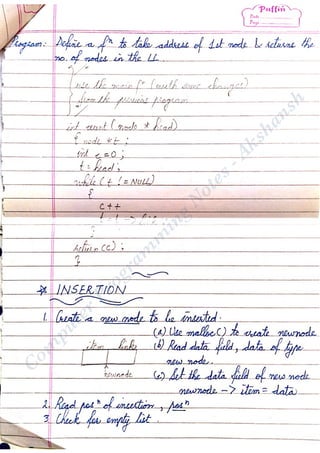 Puffin
Date
Page
Program: Define a fⁿ to take address of 1st node & returns the
no. of nodes in the LL.
use the main fⁿ (with some changes)
from the previous program
int count (node * head)
{ node *t ;
int c = 0 ;
t = head ;
while ( t != NULL)
{
c ++
}
return (c) ;
}
* INSERTION
1. Create a new node to be inserted.
(a) Use malloc() to create newnode
item link
(b) Read data field, data of type
new node.
newnode
(c) Set the data field of new node
newnode -> item = data
2. Read posⁿ of insertion, posⁿ
3. Check for empty list.
Computer Programming Notes - Akshansh